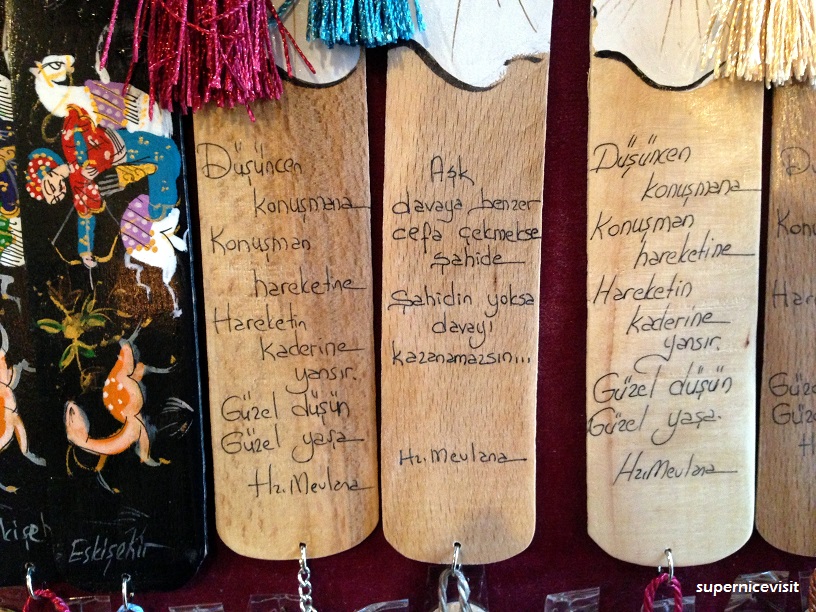 Eskişehir
Düşüncen
konuşmana
Konuşman
hareketine
Hareketin
kaderine
yansır.
Güzel düşün
Güzel yaşa
Hz. Mevlana
Aşk
davaya benzer
cefa çekmekse
Şahide
Şahidin yoksa
davayı
kazanamazsın...
Hz. Mevlana
Düşüncen
konuşmana
Konuşman
hareketine
Hareketin
kaderine
yansır.
Güzel düşün
Güzel yaşa.
Hz. Mevlana
supernicevisit